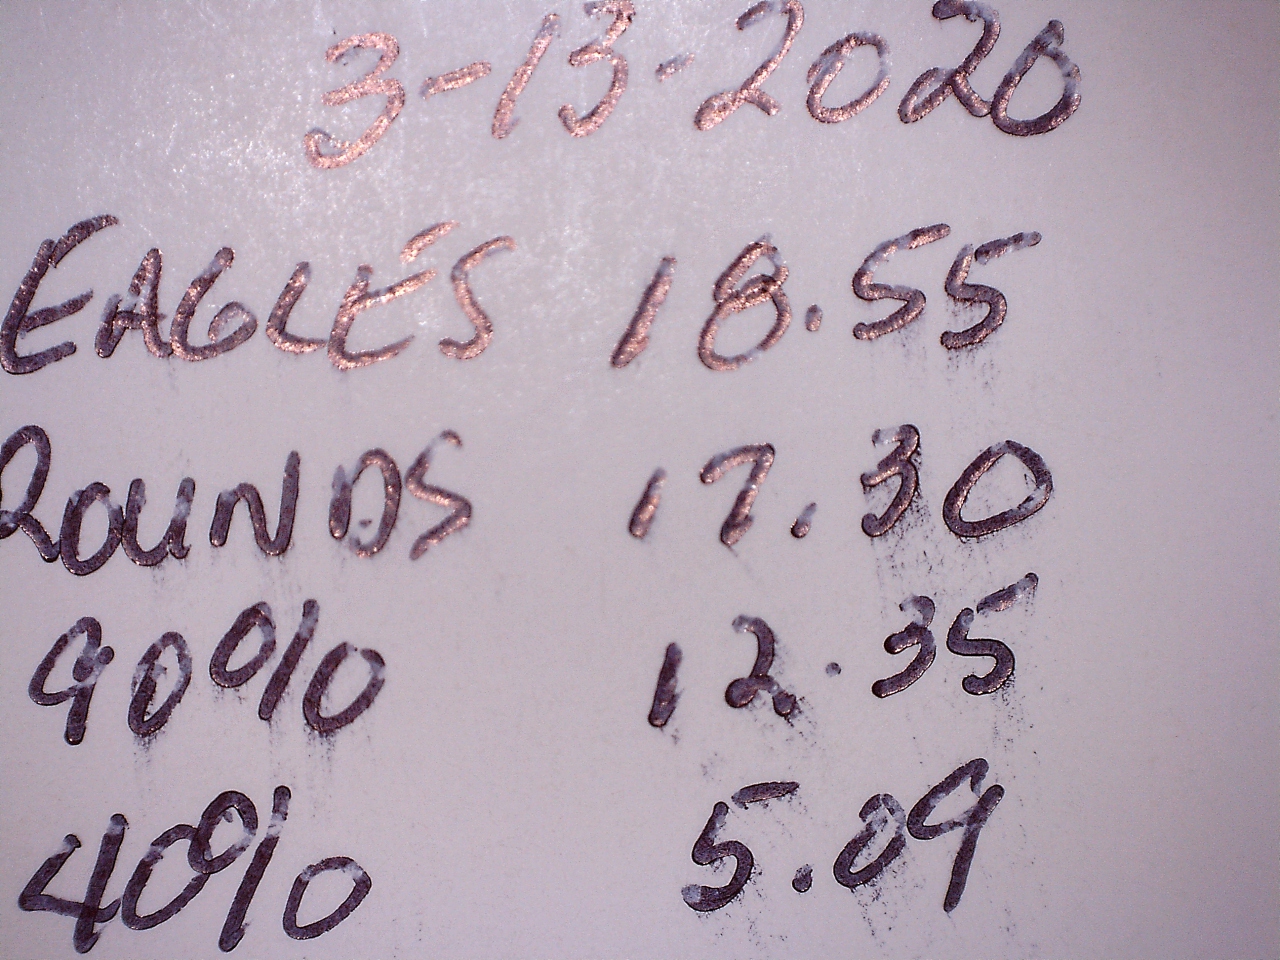 3-13-2020
EAGLES 18.55
ROUNDS 17.30
90% 12.35
40% 5.09